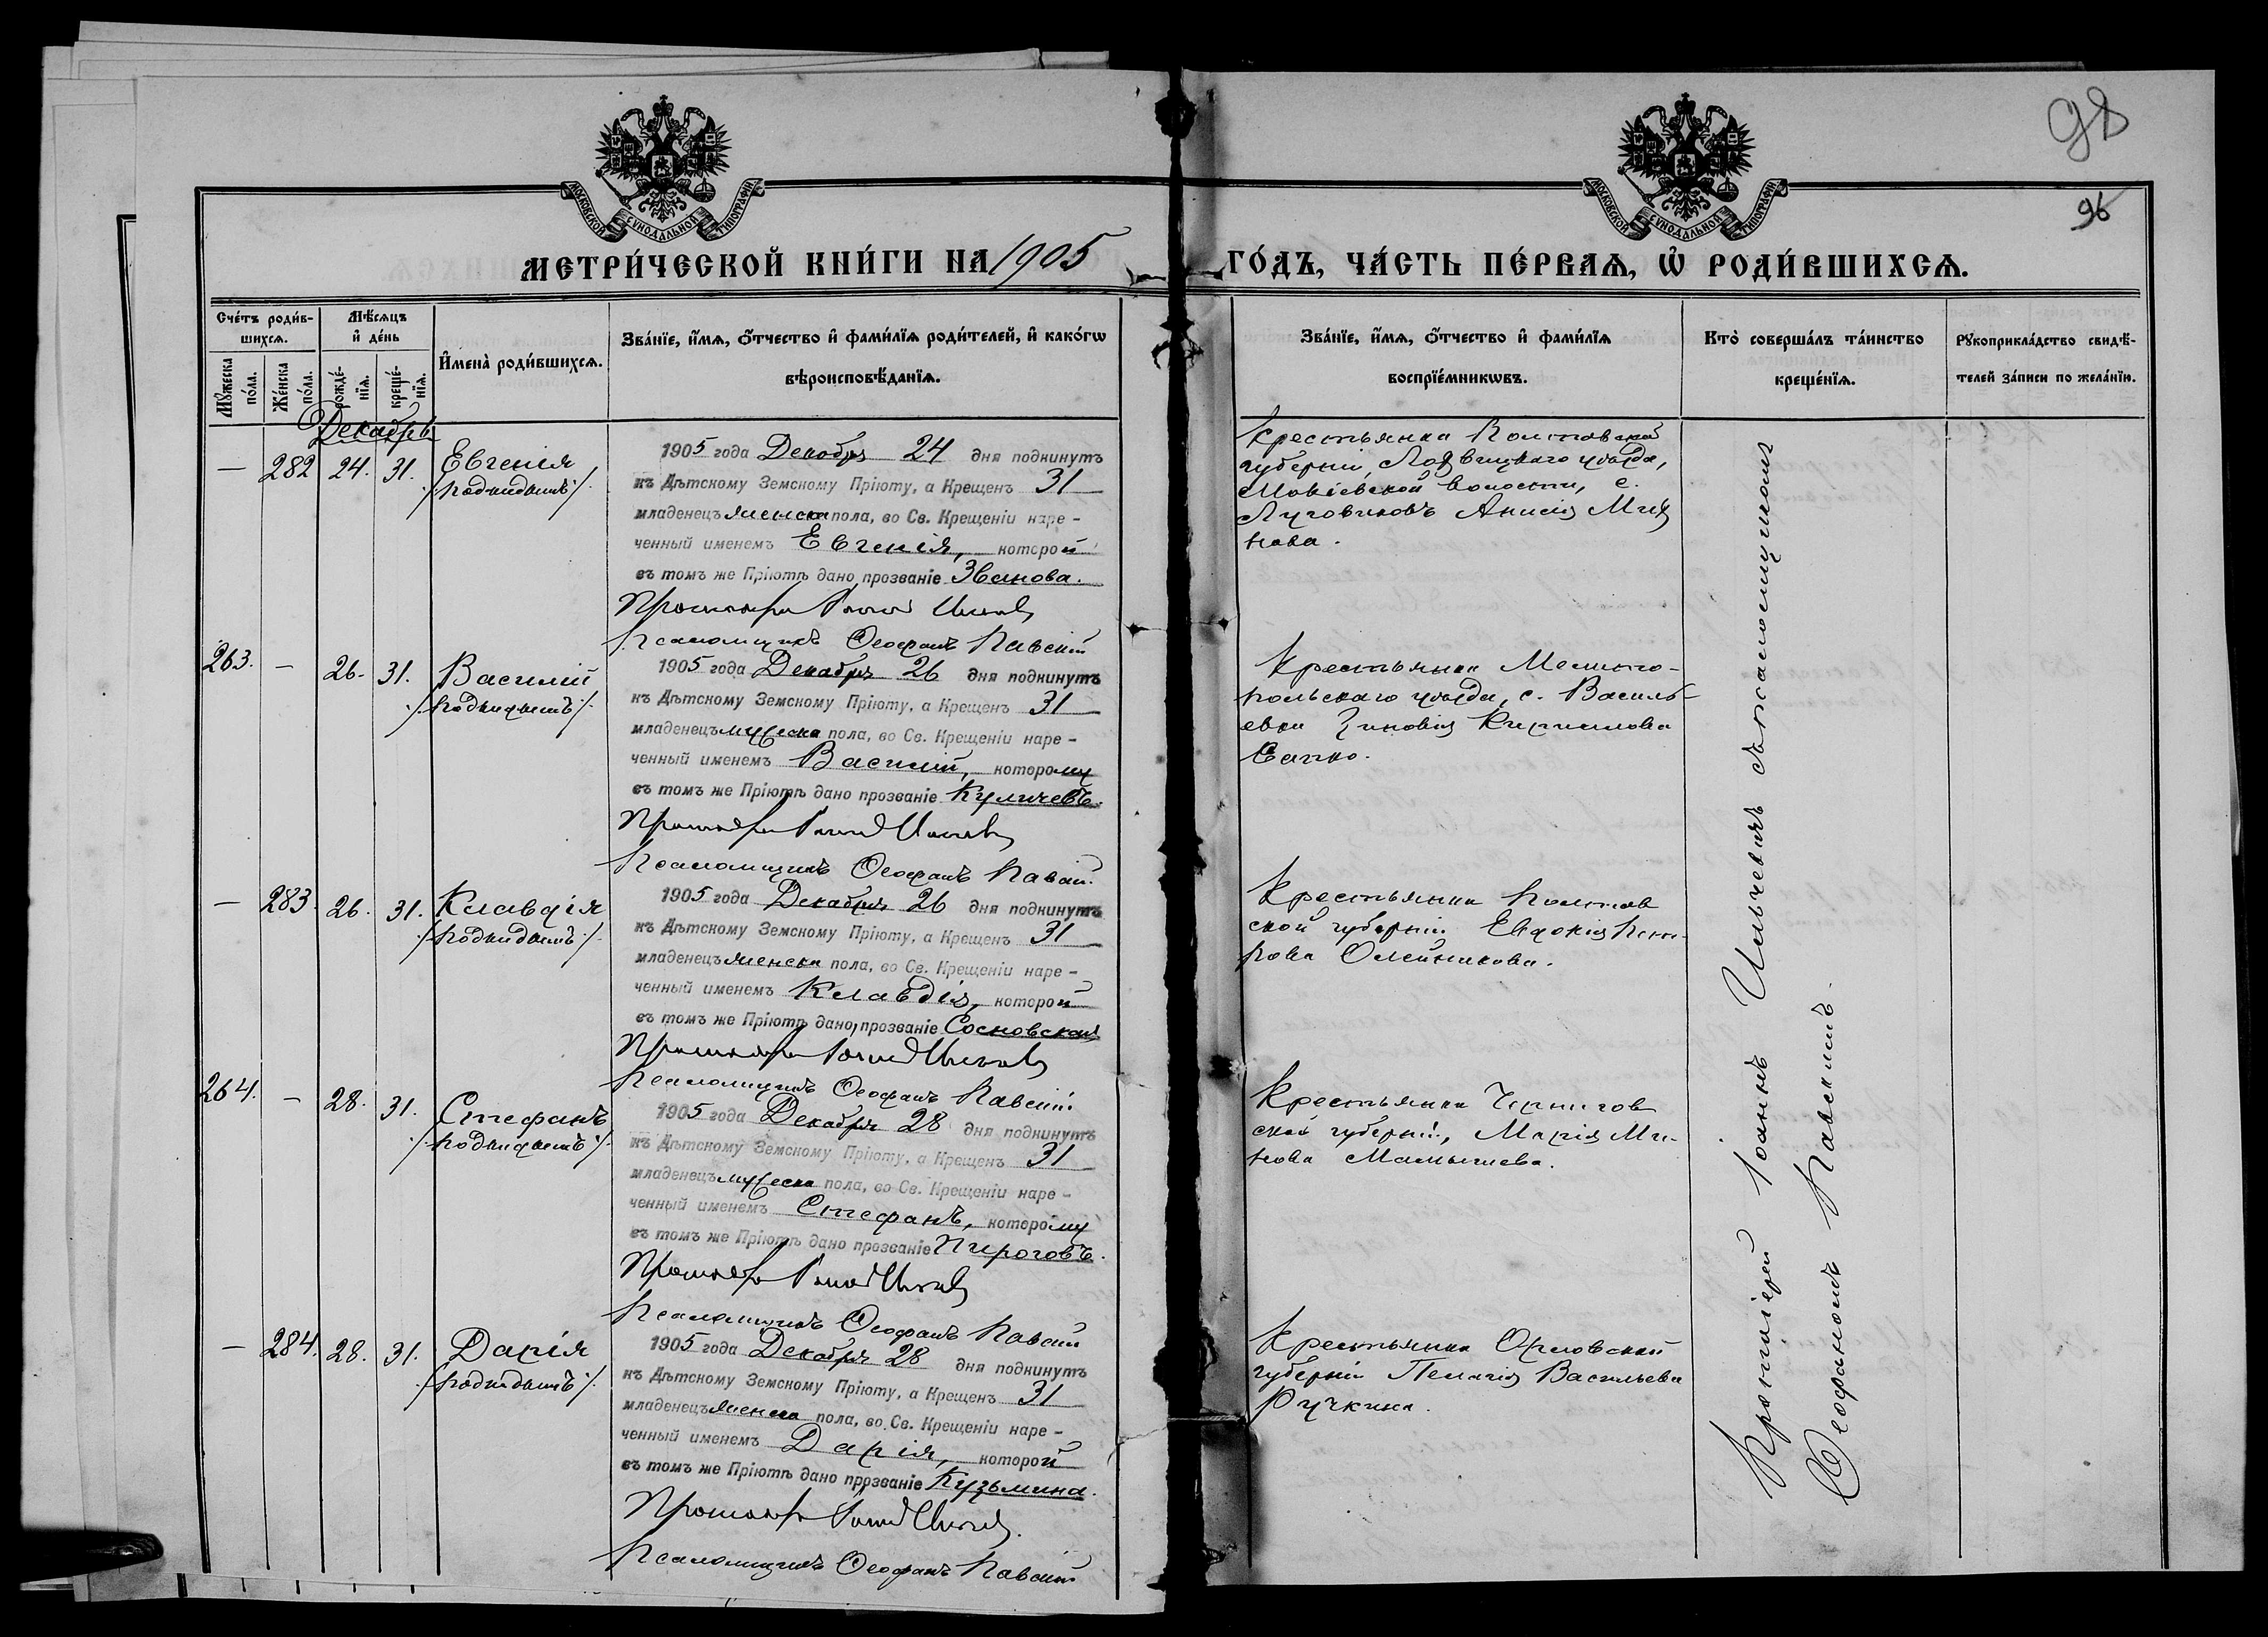 98
96
МОСКОВСКОЙ СѴНОДАЛЬНОЙ ТИПОГРАФІИ
МОСКОВСКОЙ СѴНОДАЛЬНОЙ ТИПОГРАФІИ
МЕТРИ́ЧЕСКОЙ КНИ́ГИ НА 1905 ГО́ДЪ, ЧА́СТЬ ПЕ́РВАѦ, Ѡ҆ РОДИ́ВШИХСѦ.
Счетъ роди́в-
шихсѧ.
Мѣ́сѧцъ
и҆ де́нь
Мꙋжеска
по́ла.
Же́нска
по́ла.
рожде́-
нїѧ.
креще́-
нїѧ.
И҆мена̀ роди́вшихсѧ.
Зва́нїе, и҆́мѧ, ѻ҆́тчество и҆ фами́лїѧ роди́телей, и҆ како́гѡ
вѣроисповѣ́данїѧ.
Зва́нїе, и҆́мѧ, ѻ҆́тчество и҆ фами́лїѧ
воспрїе́мникѡвъ.
Кто̀ соверша́лъ та́инство
креще́нїѧ.
Рꙋкоприкла́дство свидѣ́-
телей за́писи по жела́нїю.
Декабрь
— 282 24. 31. Евгенія
/подкидышъ/
1905 года Декабря 24 дня подкинутъ
къ Дѣтскому Земскому Пріюту, а Крещенъ 31
младенецъ женска пола, во Св. Крещеніи наре-
ченный именемъ Евгенія, которой
въ томъ же Пріютѣ дано прозваніе Званова.
Протоіерей Іоаннъ Ильичевъ
Псаломщикъ Ѳеофанъ Павскій
Крестьянка Полтавской
губерніи, Лохвицкаго уѣзда,
волости, с.
Анисія
263. — 26. 31. Василій
/подкидышъ/
1905 года Декабря 26 дня подкинутъ
къ Дѣтскому Земскому Пріюту, а Крещенъ 31
младенецъ мужеска пола, во Св. Крещеніи наре-
ченный именемъ Василій, которому
въ томъ же Пріютѣ дано прозваніе Куличевъ.
Протоіерей Іоаннъ Ильичевъ
Псаломщикъ Ѳеофанъ Павскій
Крестьянка Мелито-
польскаго уѣзда, с. Василь-
евки Зиновія Кириллова
— 283. 26. 31. Клавдія
/подкидышъ/
1905 года Декабря 26 дня подкинутъ
къ Дѣтскому Земскому Пріюту, а Крещенъ 31
младенецъ женска пола, во Св. Крещеніи наре-
ченный именемъ Клавдія, которой
въ томъ же Пріютѣ дано прозваніе Сосновская
Протоіерей Іоаннъ Ильичевъ
Псаломщикъ Ѳеофанъ Павскій
Крестьянка Полтав
ской губерніи Евдокія Пет-
рова Олейникова.
264. — 28. 31. Стефанъ
/подкидышъ/
1905 года Декабря 28 дня подкинутъ
къ Дѣтскому Земскому Пріюту, а Крещенъ 31
младенецъ мужеска пола, во Св. Крещеніи наре-
ченный именемъ Стефанъ, которому
въ томъ же Пріютѣ дано прозваніе Пироговъ.
Протоіерей Іоаннъ Ильичевъ
Псаломщикъ Ѳеофанъ Павскій
Крестьянка Чернигов
ской губерніи, Марія Ми-
нова
— 284. 28. 31. Дарія
/подкидышъ/
1905 года Декабря 28 дня подкинутъ
къ Дѣтскому Земскому Пріюту, а Крещенъ 31
младенецъ женска пола, во Св. Крещеніи наре-
ченный именемъ Дарія, которой
въ томъ же Пріютѣ дано прозваніе Кузьмина.
Протоіерей Іоаннъ Ильичевъ
Псаломщикъ Ѳеофанъ Павскій
Крестьянка Орловской
губерніи Пелагія Васильева
Ручкина.
Протоіерей Іоаннъ Ильичевъ съ псаломщикомъ
Ѳеофаномъ Павскимъ.